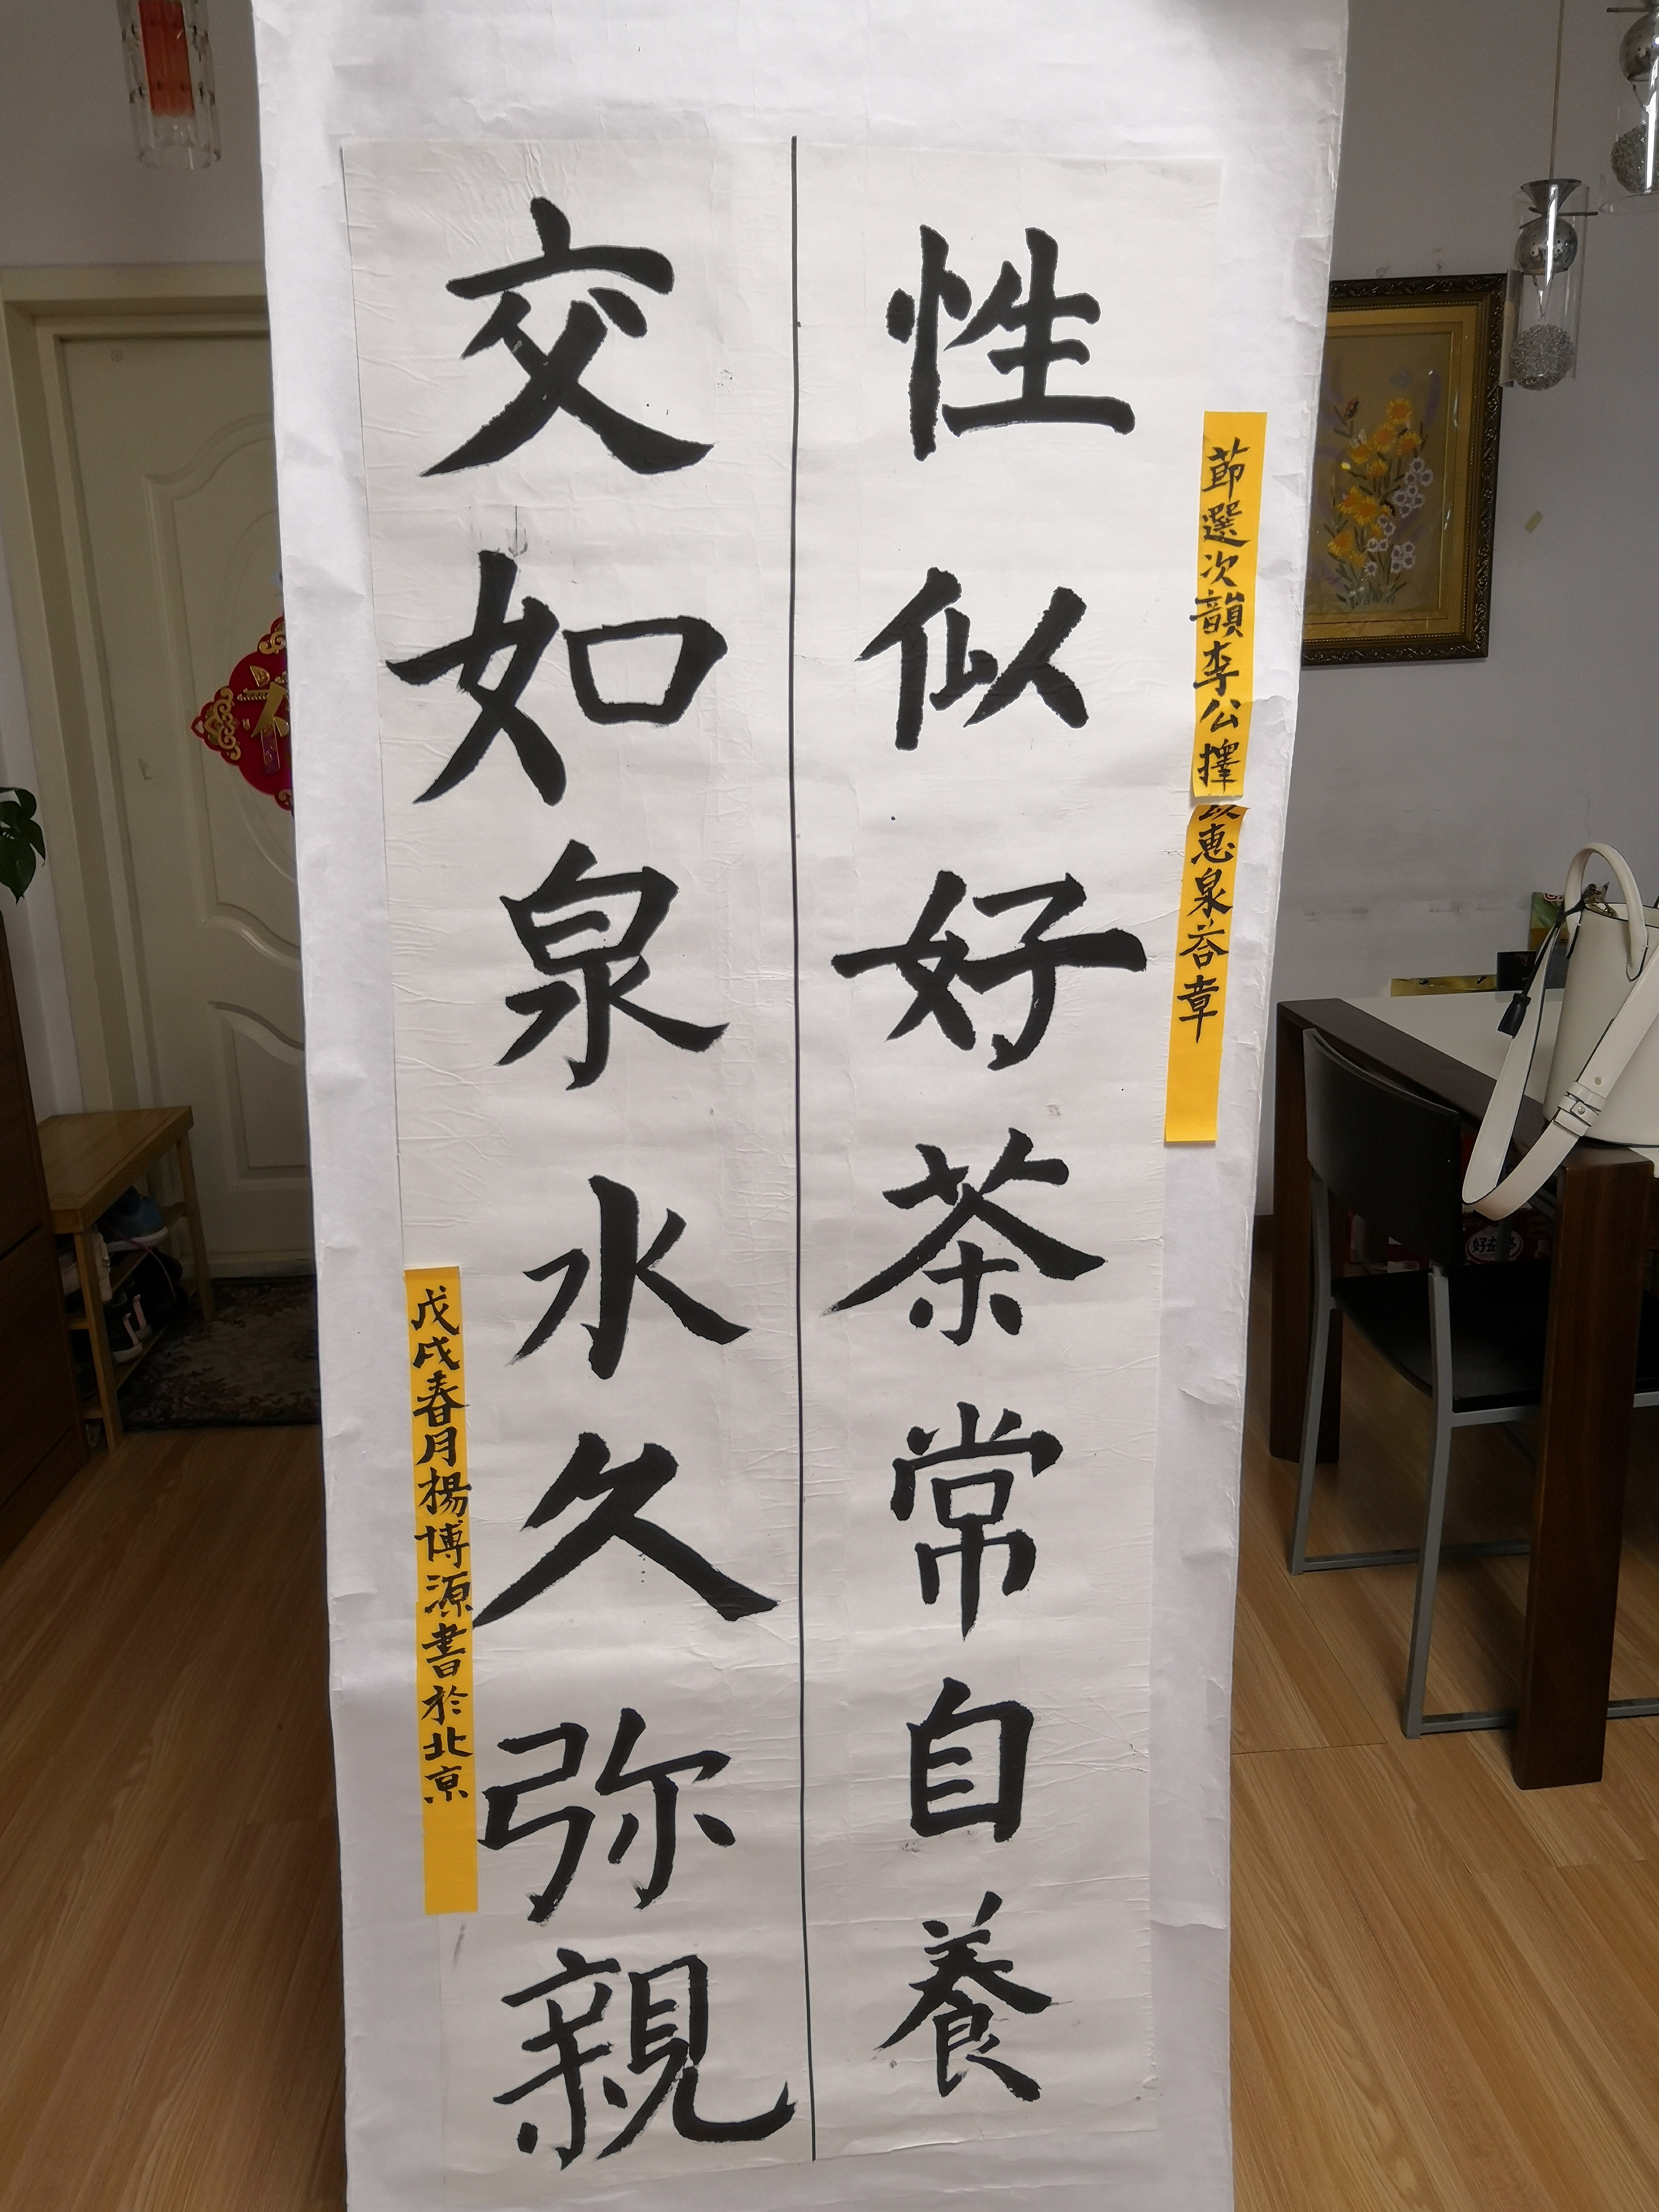 節選次韻李公擇以惠泉荅章
性似好茶常自養
交如泉水久弥親
戊戌春月楊博源書於北京